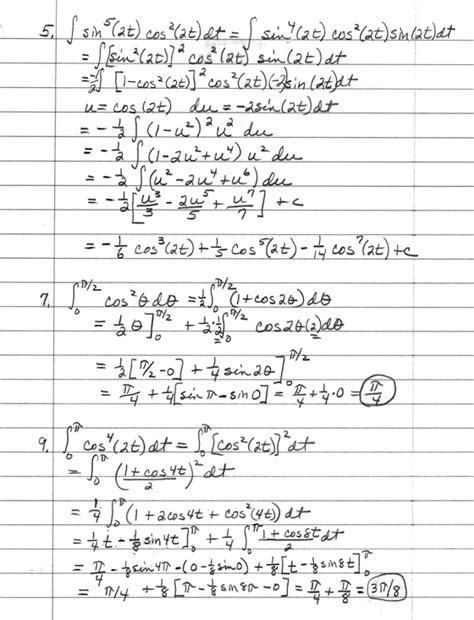 5. ∫ sin⁵(2t) cos²(2t)dt = ∫ sin⁴(2t) cos²(2t) sin(2t)dt
= ∫ [sin²(2t)]² cos²(2t) sin(2t)dt
= -½ ∫ [1-cos²(2t)]² cos²(2t)(-2)sin(2t)dt
u = cos(2t) du = -2sin(2t)dt
= -½ ∫ (1-u²)² u² du
= -½ ∫ (1-2u²+u⁴) u² du
= -½ ∫ (u²-2u⁴+u⁶) du
= -½ [u³/3 - 2u⁵/5 + u⁷/7] + c
= -1/6 cos³(2t) + 1/5 cos⁵(2t) - 1/14 cos⁷(2t) + c
7. ∫₀^(π/2) cos²θ dθ = ½ ∫₀^(π/2) (1+cos2θ) dθ
= ½ θ]₀^(π/2) + ½·½ ∫₀^(π/2) cos2θ(2)dθ
= ½ [π/2 - 0] + ¼ sin2θ]₀^(π/2)
= π/4 + ¼[sin π - sin 0] = π/4 + ¼·0 = π/4
9. ∫₀^π cos⁴(2t) dt = ∫₀^π [cos²(2t)]² dt
= ∫₀^π ((1+cos4t)/2)² dt
= ¼ ∫₀^π (1 + 2cos4t + cos²(4t)) dt
= ¼ t - ⅛ sin4t]₀^π + ¼ ∫₀^π (1+cos8t)/2 dt
= π/4 - ⅛ sin4π - (0 - ⅛ sin0) + ⅛ [t - ⅛ sin8t]₀^π
= π/4 + ⅛ [π - ⅛ sin8π - 0] = π/4 + π/8 = 3π/8